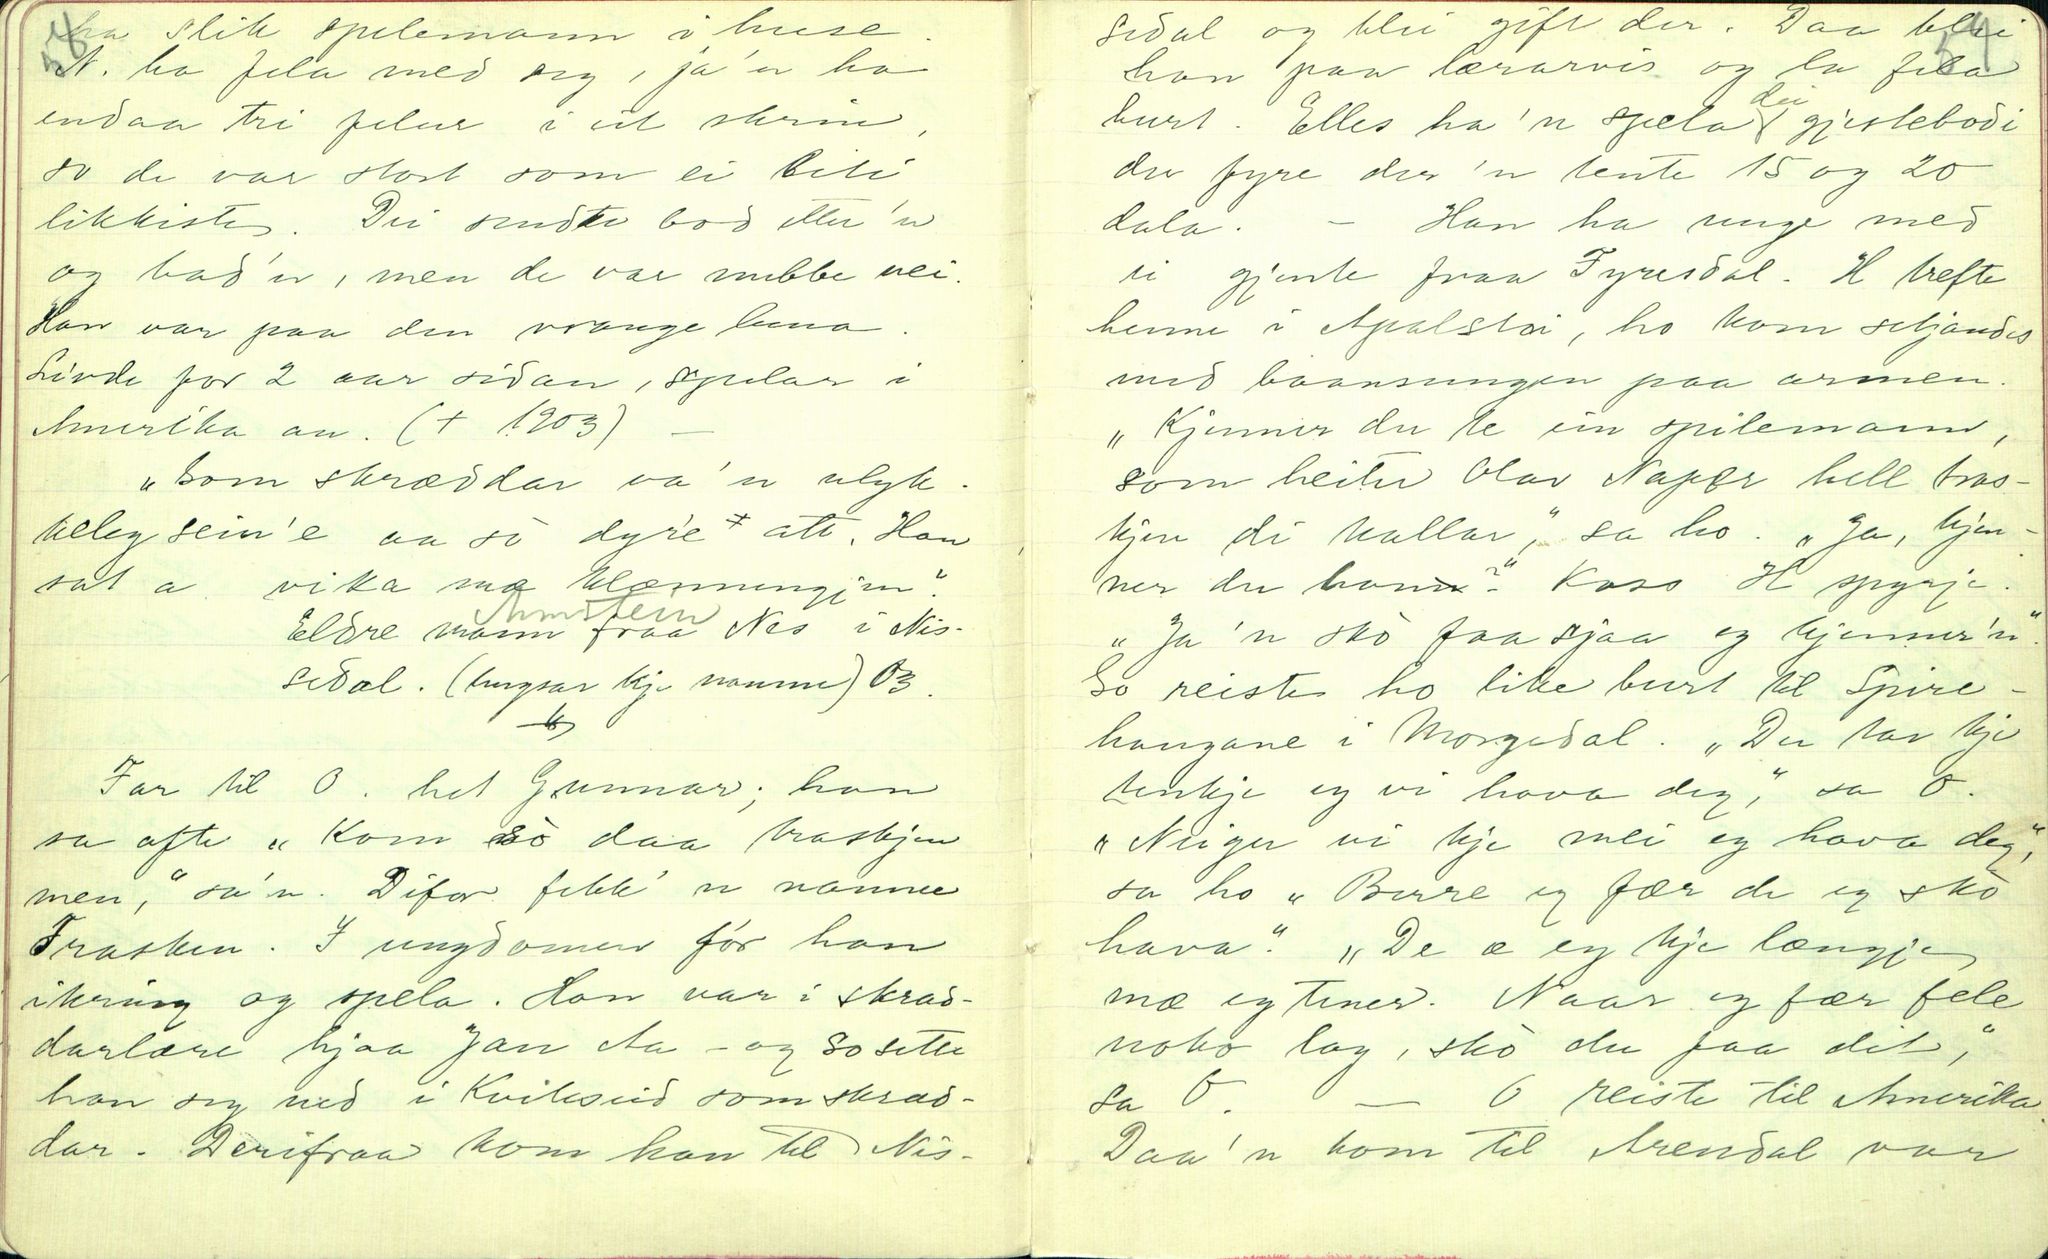 ha slik spelemann i huse.
N. ha fela med seg, ja 'n ha
endaa tri felur i eit skrin,
so de var stort som ei liti
likkiste. Dei sendte bod etter 'n
og bad 'n, men de var nubbe nei.
Han var paa den vrange luna.
Livde for 2 aar sidan, spelar i
Amerika au. (+ 1903) —
"Som skræddar va 'n ulyk-
keleg sein 'e aa so dyr'e + att. Han
sat a vika mæ klænningjen".
Armstein
Eldre mann fraa Nes i Nis-
sedal. (hugsar kje namne) 03.
Far til O. het Gunnar; han
sa ofte "Kom so daa traskjen
men," sa 'n. Difor fekk 'n namne
Trasken. I ungdomen fór han
ikring og spela. Han var i skrad-
darlære hjaa Jan Aa - og so sette
han seg ned i Kviteseid som skrad-
dar. Derifraa kom han til Nis-
54
sedal og blei gift der. Daa blei
han paa lærarvis og la fela
burt. Elles ha 'n spela dei gjestebodi
der fyre der 'n tente 15 og 20
dala. — Han ha unge med
ei gjente fraa Fyresdal. H trefte
henne i Apalstøi, ho kom setjandes
med baansungen paa armen.
"Kjenner du te ein spilemann,
som heiter Olav Napær hell tras-
kjen di kallar," sa ho. "Ja, kjen-
ner du han?" Kass H spyrje.
"Ja 'n skò faa sjaa eg kjenner 'n".
So reiste ho like burt til Spire-
haugane i Morgedal. "Du tar kje
tenkje eg vi hava deg," sa O.
"Neiger vi kje mei eg hava deg",
sa ho "Berre eg fær de eg skò
hava". "De æ eg kje længje
mæ eg tener. Naar eg fær fele
noko lag, skò du faa dit,"
sa O. — O reiste til Amerika.
Daa 'n kom til Arendal var